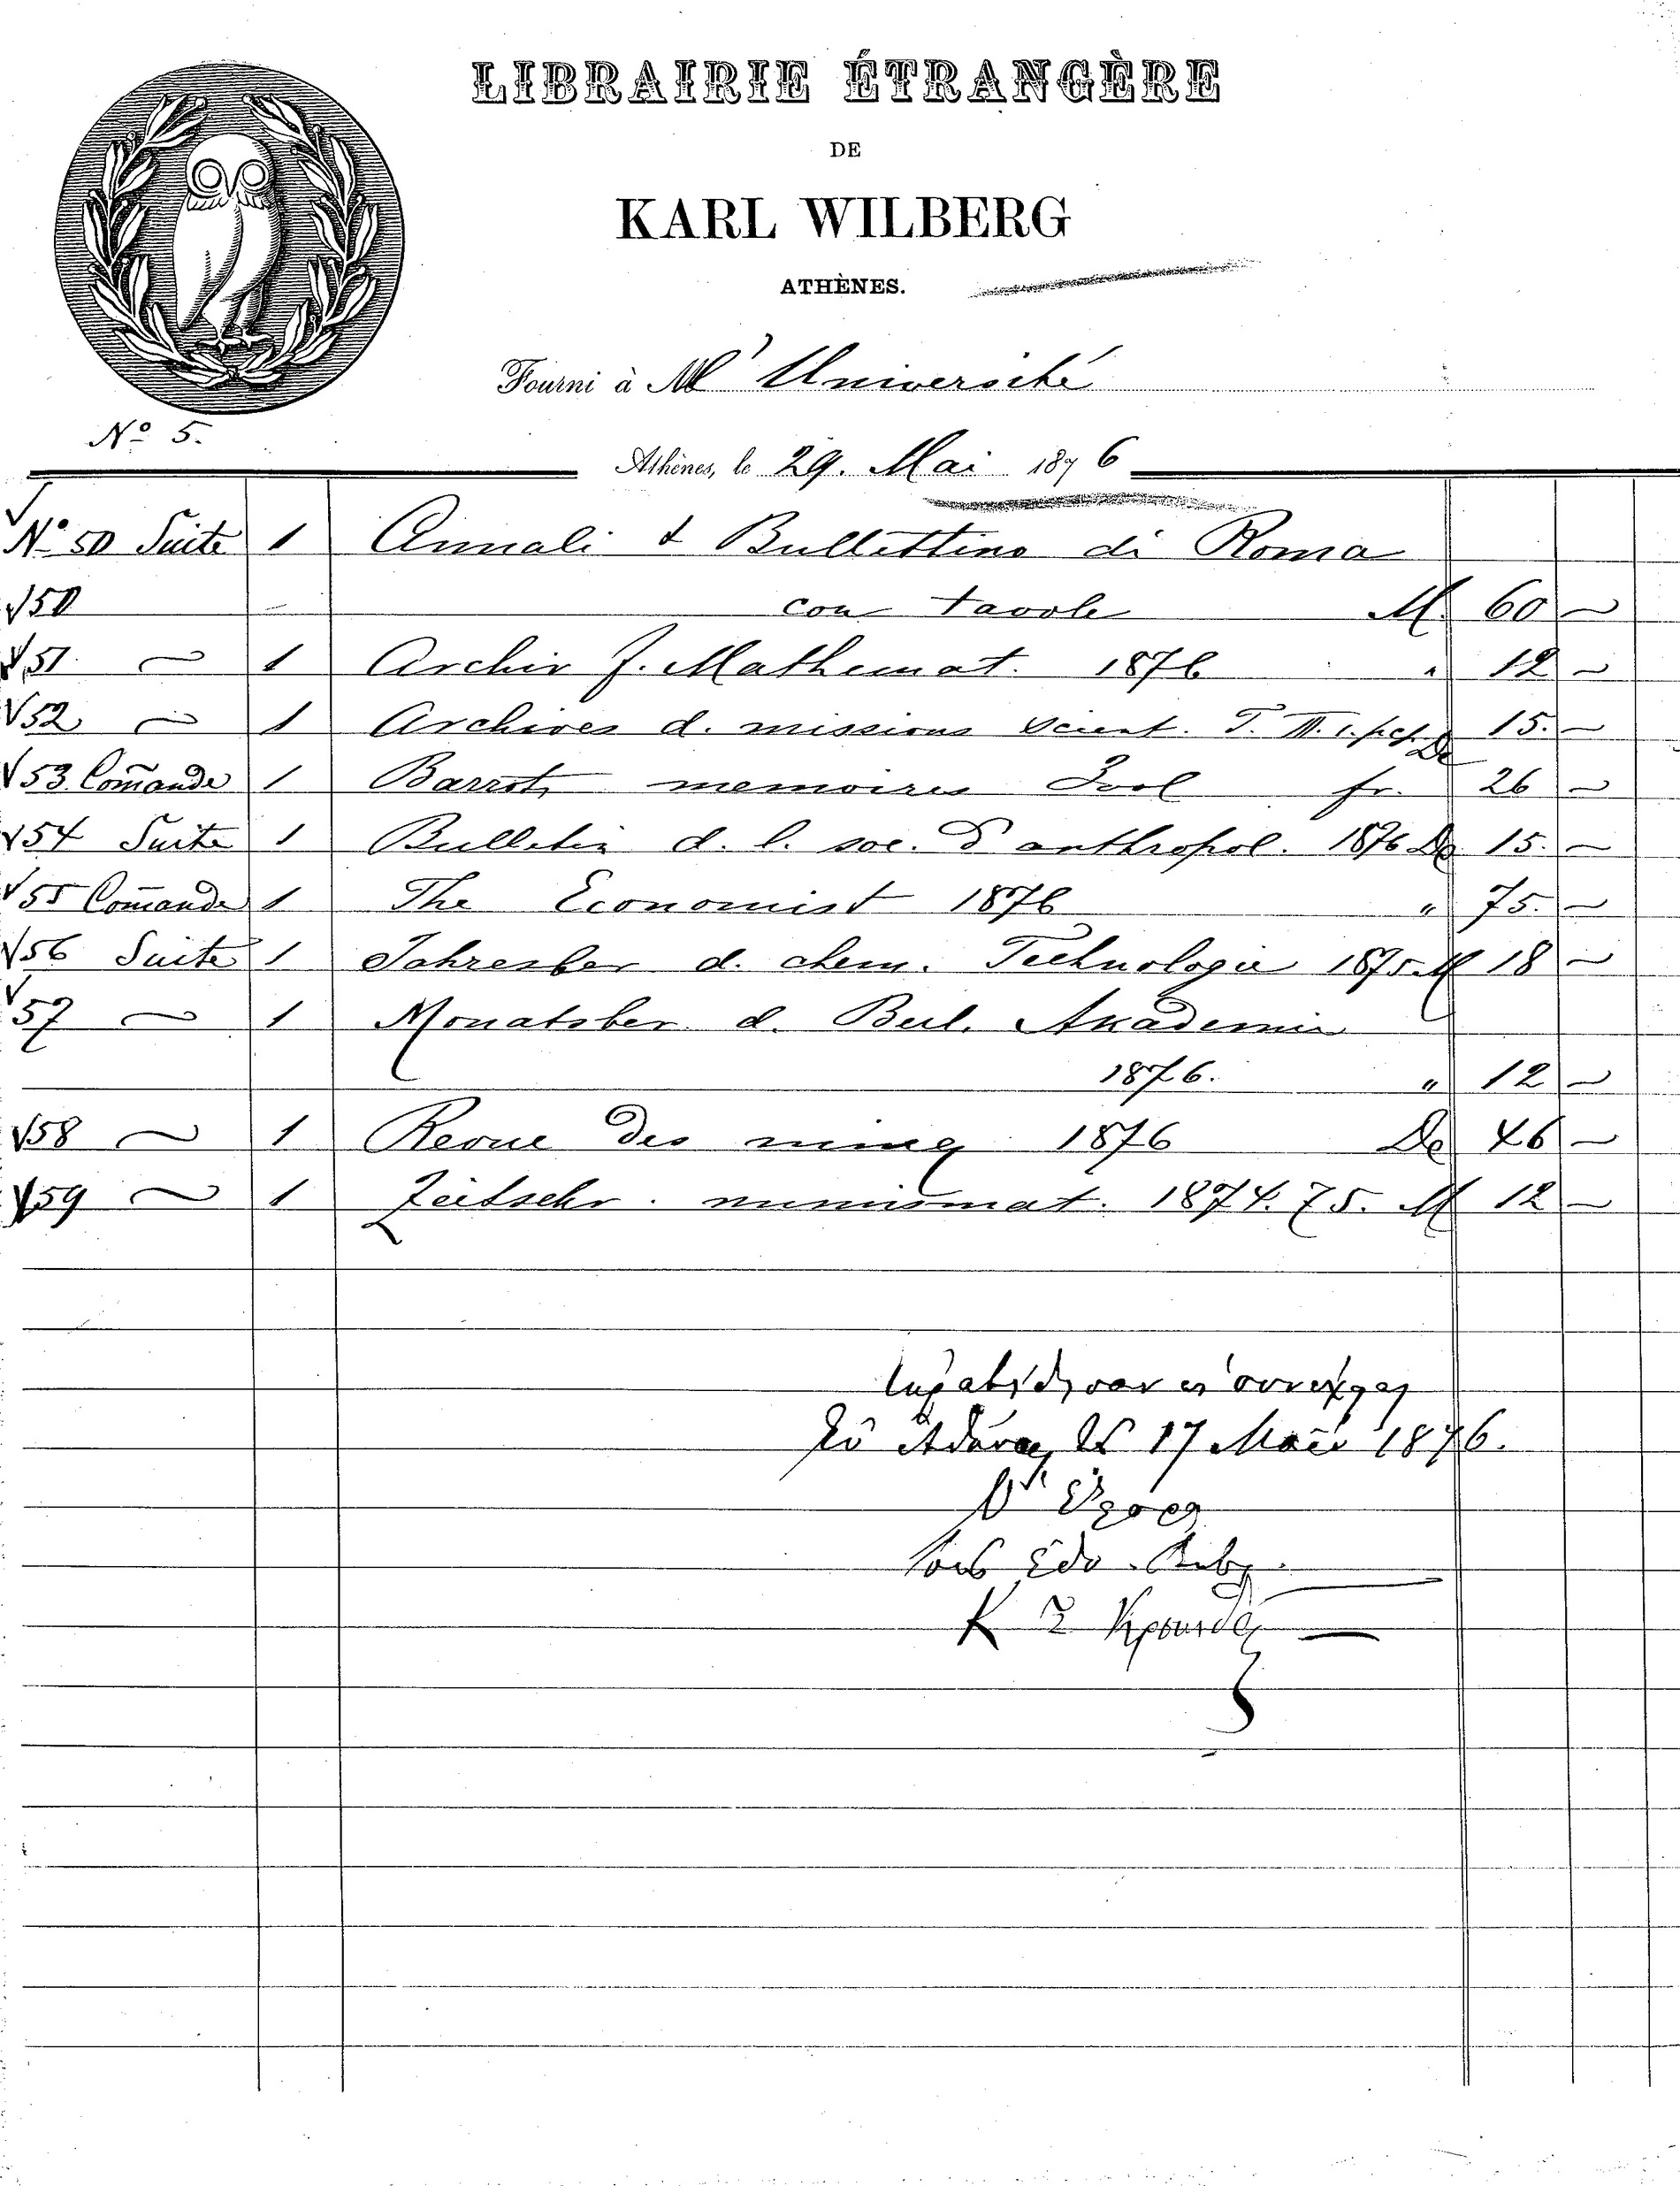 LIBRAIRIE ÉTRANGÈRE
DE
KARL WILBERG
ATHÈNES.
Fourni à M l'Université
No 5.
Athènes, le 29. Mai 1876
No 50 Suite 1 Annali & Bullettino di Roma
50 con tavole M. 60 —
51 — 1 Archiv f. Mathemat. 1876 " 12 —
52 — 1 Archives d. missions scient. T. III. De 15. —
53 Comande 1 Barrot, memoires fr. 26 —
54 Suite 1 Bulletin d. l. soc. d'anthropol. 1876 De 15. —
55 Comande 1 The Economist 1876 " 75. —
56 Suite 1 Jahresber d. chem. Technologie 1875. M 18 —
57 — 1 Monatsber. d. Berl. Akademie
1876. " 12 —
58 — 1 Revue des mines 1876 De 46 —
59 — 1 Zeitschr. numismat. 1874. 75. M 12 —
Ἐν Ἀθήναις 17 Μαΐου 1876.
Ὁ Ἔφορος